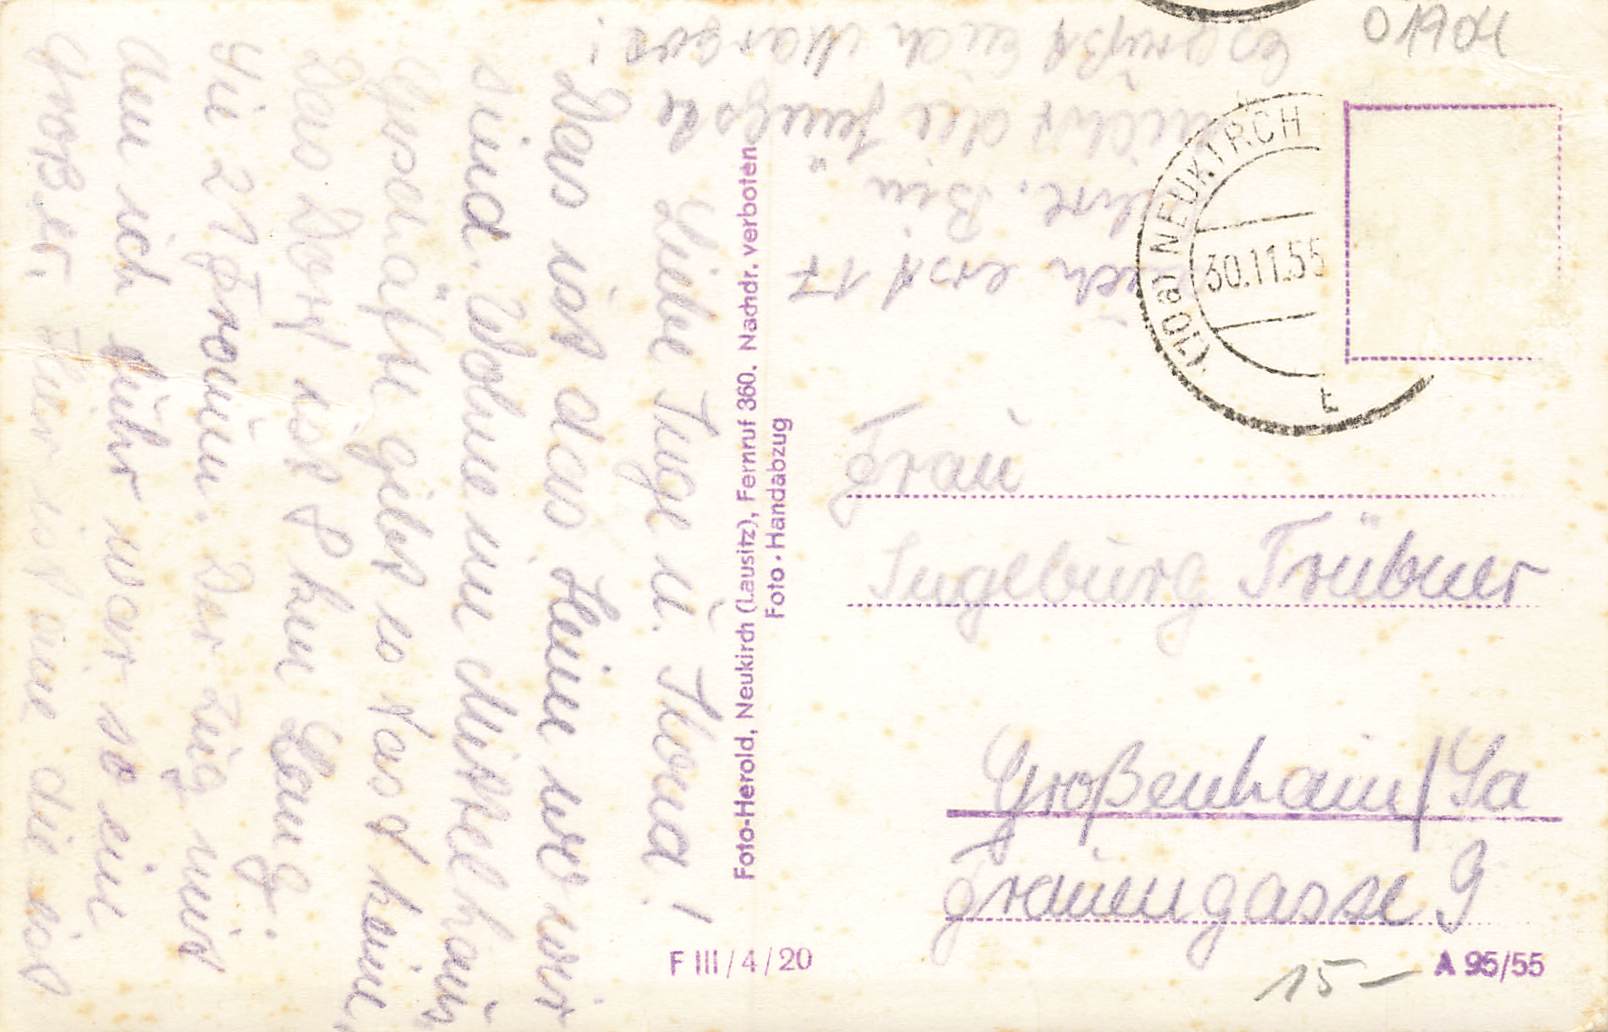 Liebe Inge u. Ilona!
Das ist das Heim wo wir
sind. Wohne im Mittelhaus,
Geschäfte giebt es fast keine,
Das Dorf ist 8 km Lang.
Wir 21 Frauen. Der Zug mit
dem ich fuhr war so ein
großer. Hier ist eine die ist
auch erst 17
Jahre. Bin
nicht die Jüngste
Es grüßt Euch Margot!
Foto-Herold, Neukirch (Lausitz), Fernruf 360. Nachdr. verboten
Foto-Handabzug
F III/4/20
01904
(10a) NEUKIRCH
30.11.55
t
Frau
Ingeburg Trübner
Großenhain/Sa
Frauengasse 9
15-
A 95/55